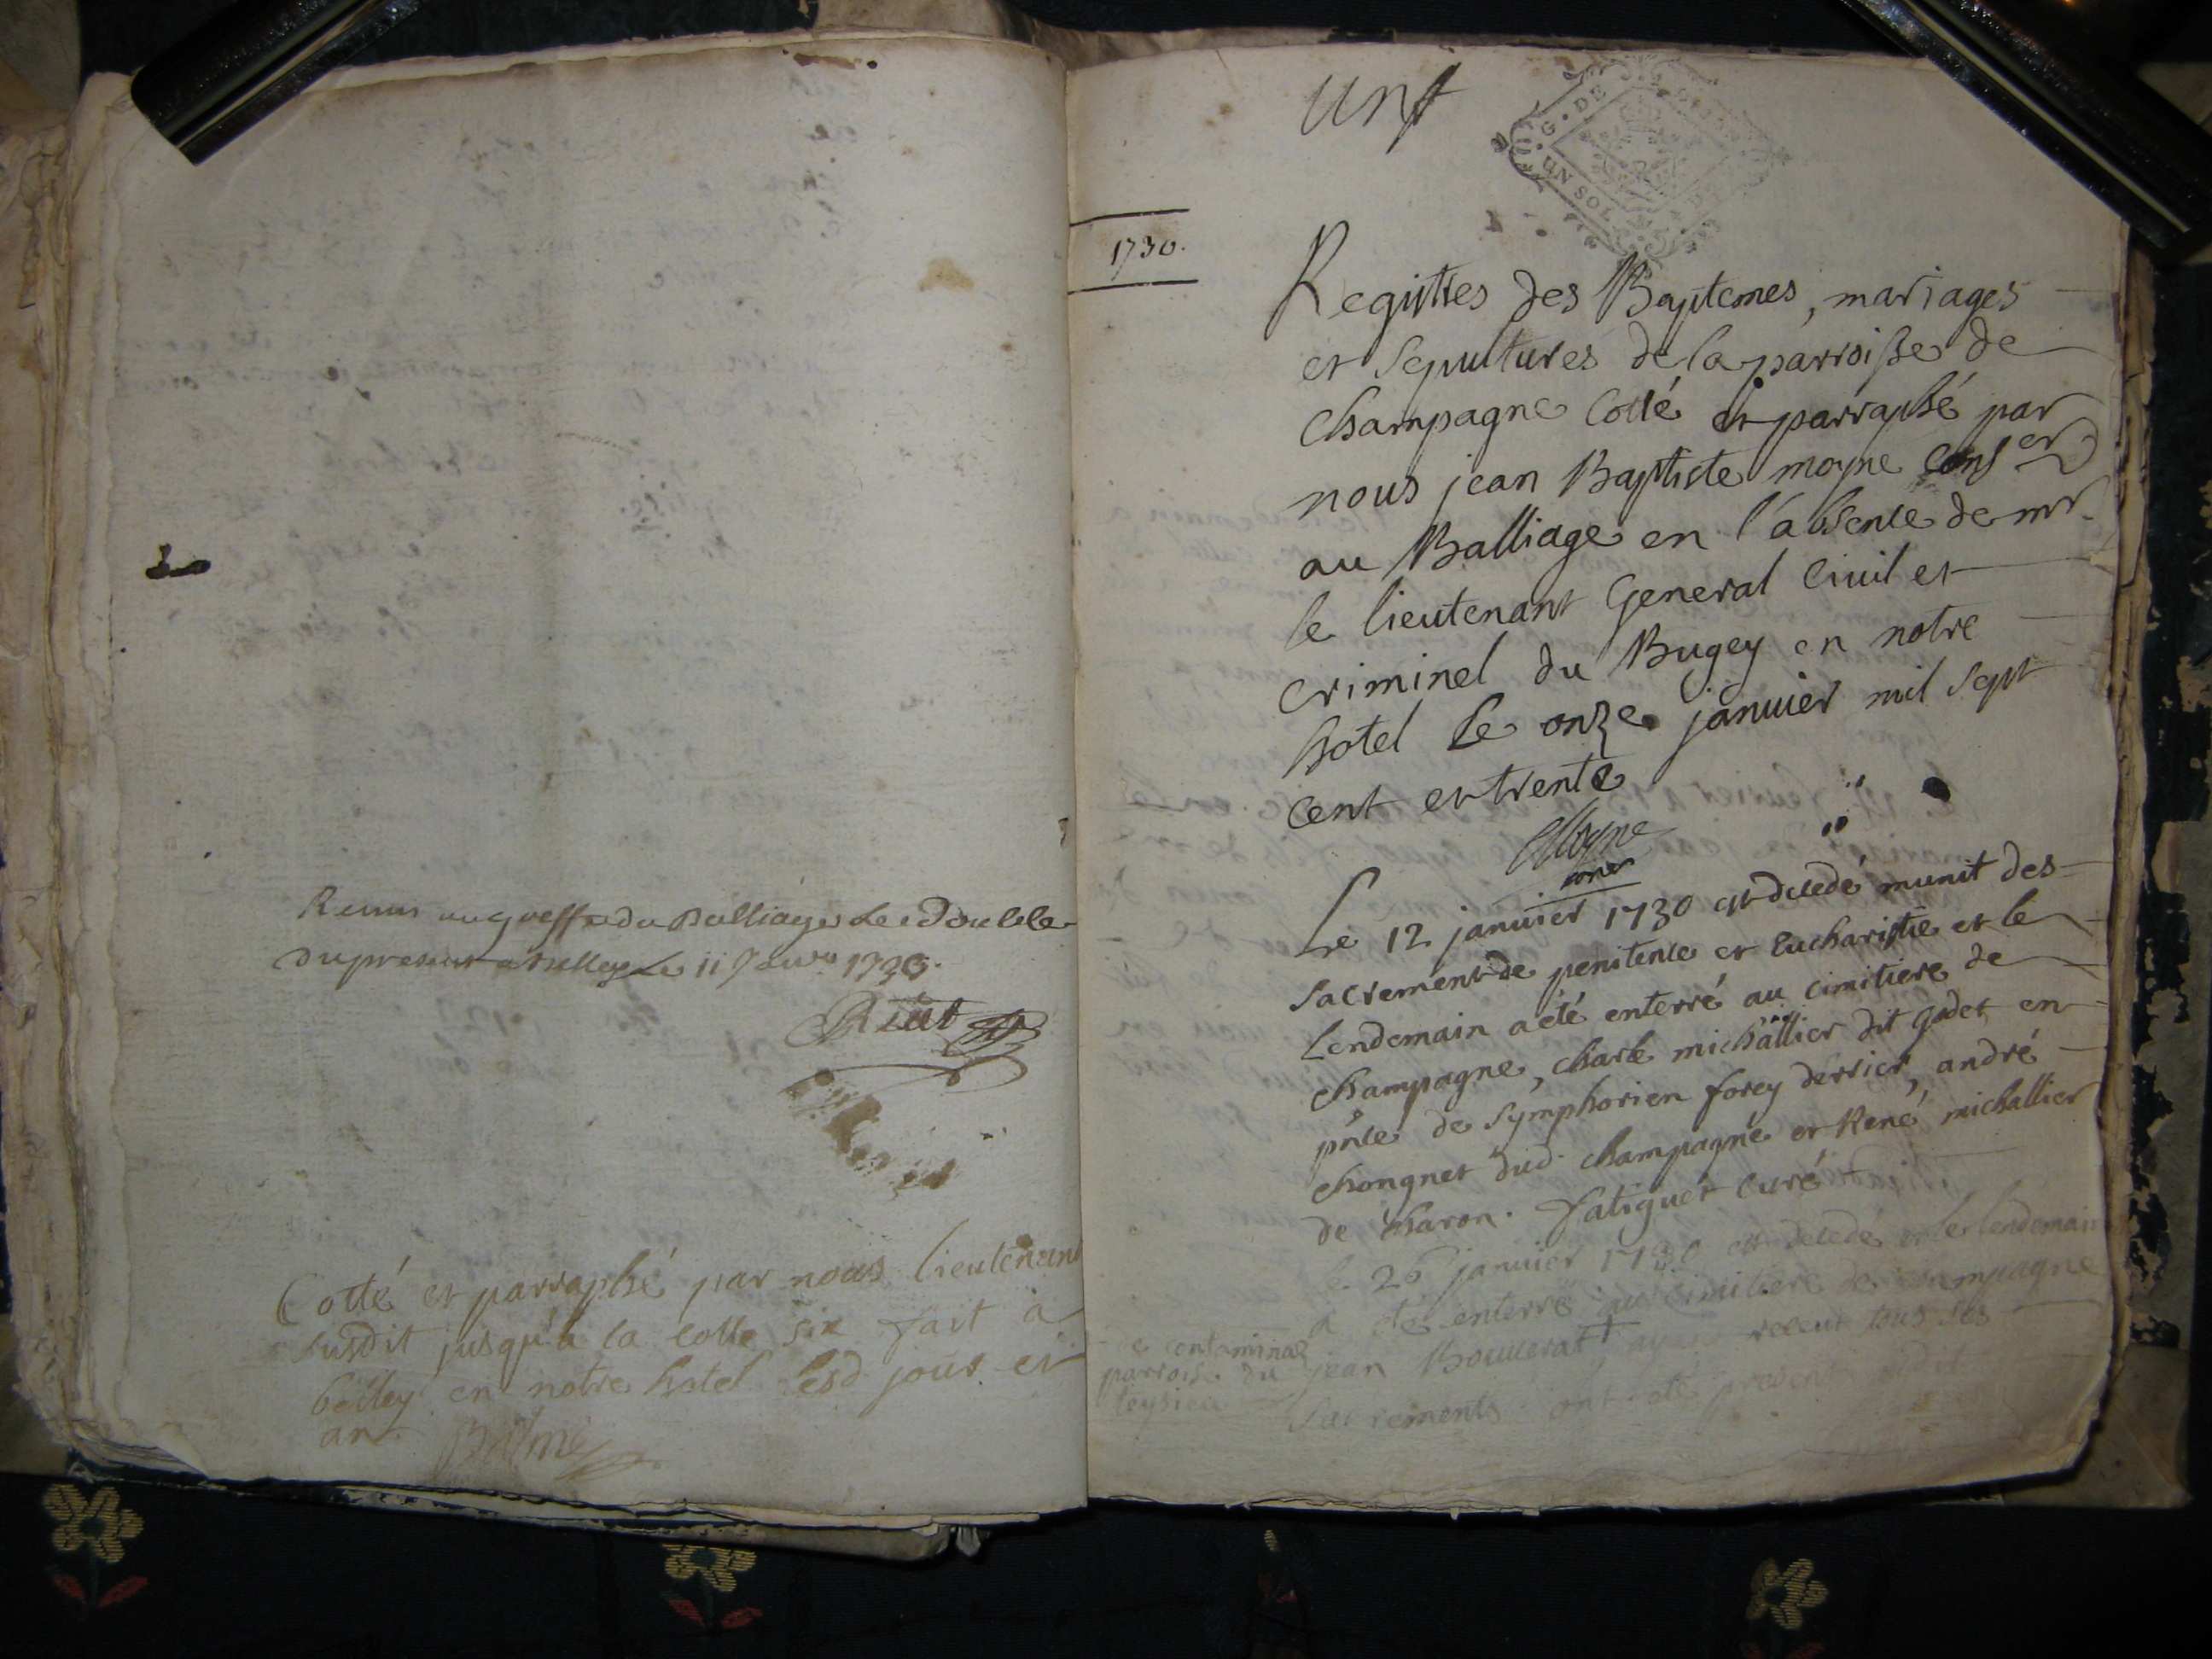 Remis au greffe du Balliage le double
du present a Belley le 11 Janv. 1730.
Cotté et parraphé par nous lieutenant
susdit jusqu'a la cotte six fait a
belley en notre hotel lesd jour et
an.
Balme
un
G. DE
UN SOL
1730.
Registres des Baptemes, mariages
et Sepultures de la parroisse de
Champagne Cotté et parraphé par
nous jean Baptiste moyne Conser
au Balliage en l'absence de mr.
le lieutenant General Civil et
Criminel du Bugey en notre
hotel le onze janvier mil sept
cent et trente
Moyne
Le 12 janvier 1730 est decedé munit des
Sacrement de penitence et Eucharistie et le
Lendemain a eté enterré au cimitiere de
Champagne, charle michallier dit gadet en
pñce de Symphorien forey derrier, andré
chongnet dud. champagne et René michallier
de charon. Fatiguet curé
le 26 janvier 1730 est decedé et le lendemain
a eté enterré au cimitiere de champagne
jean Bouverat + ayant receut tous ses
Sacrements ont eté present
de contaminaz
parrois. du
leysieu